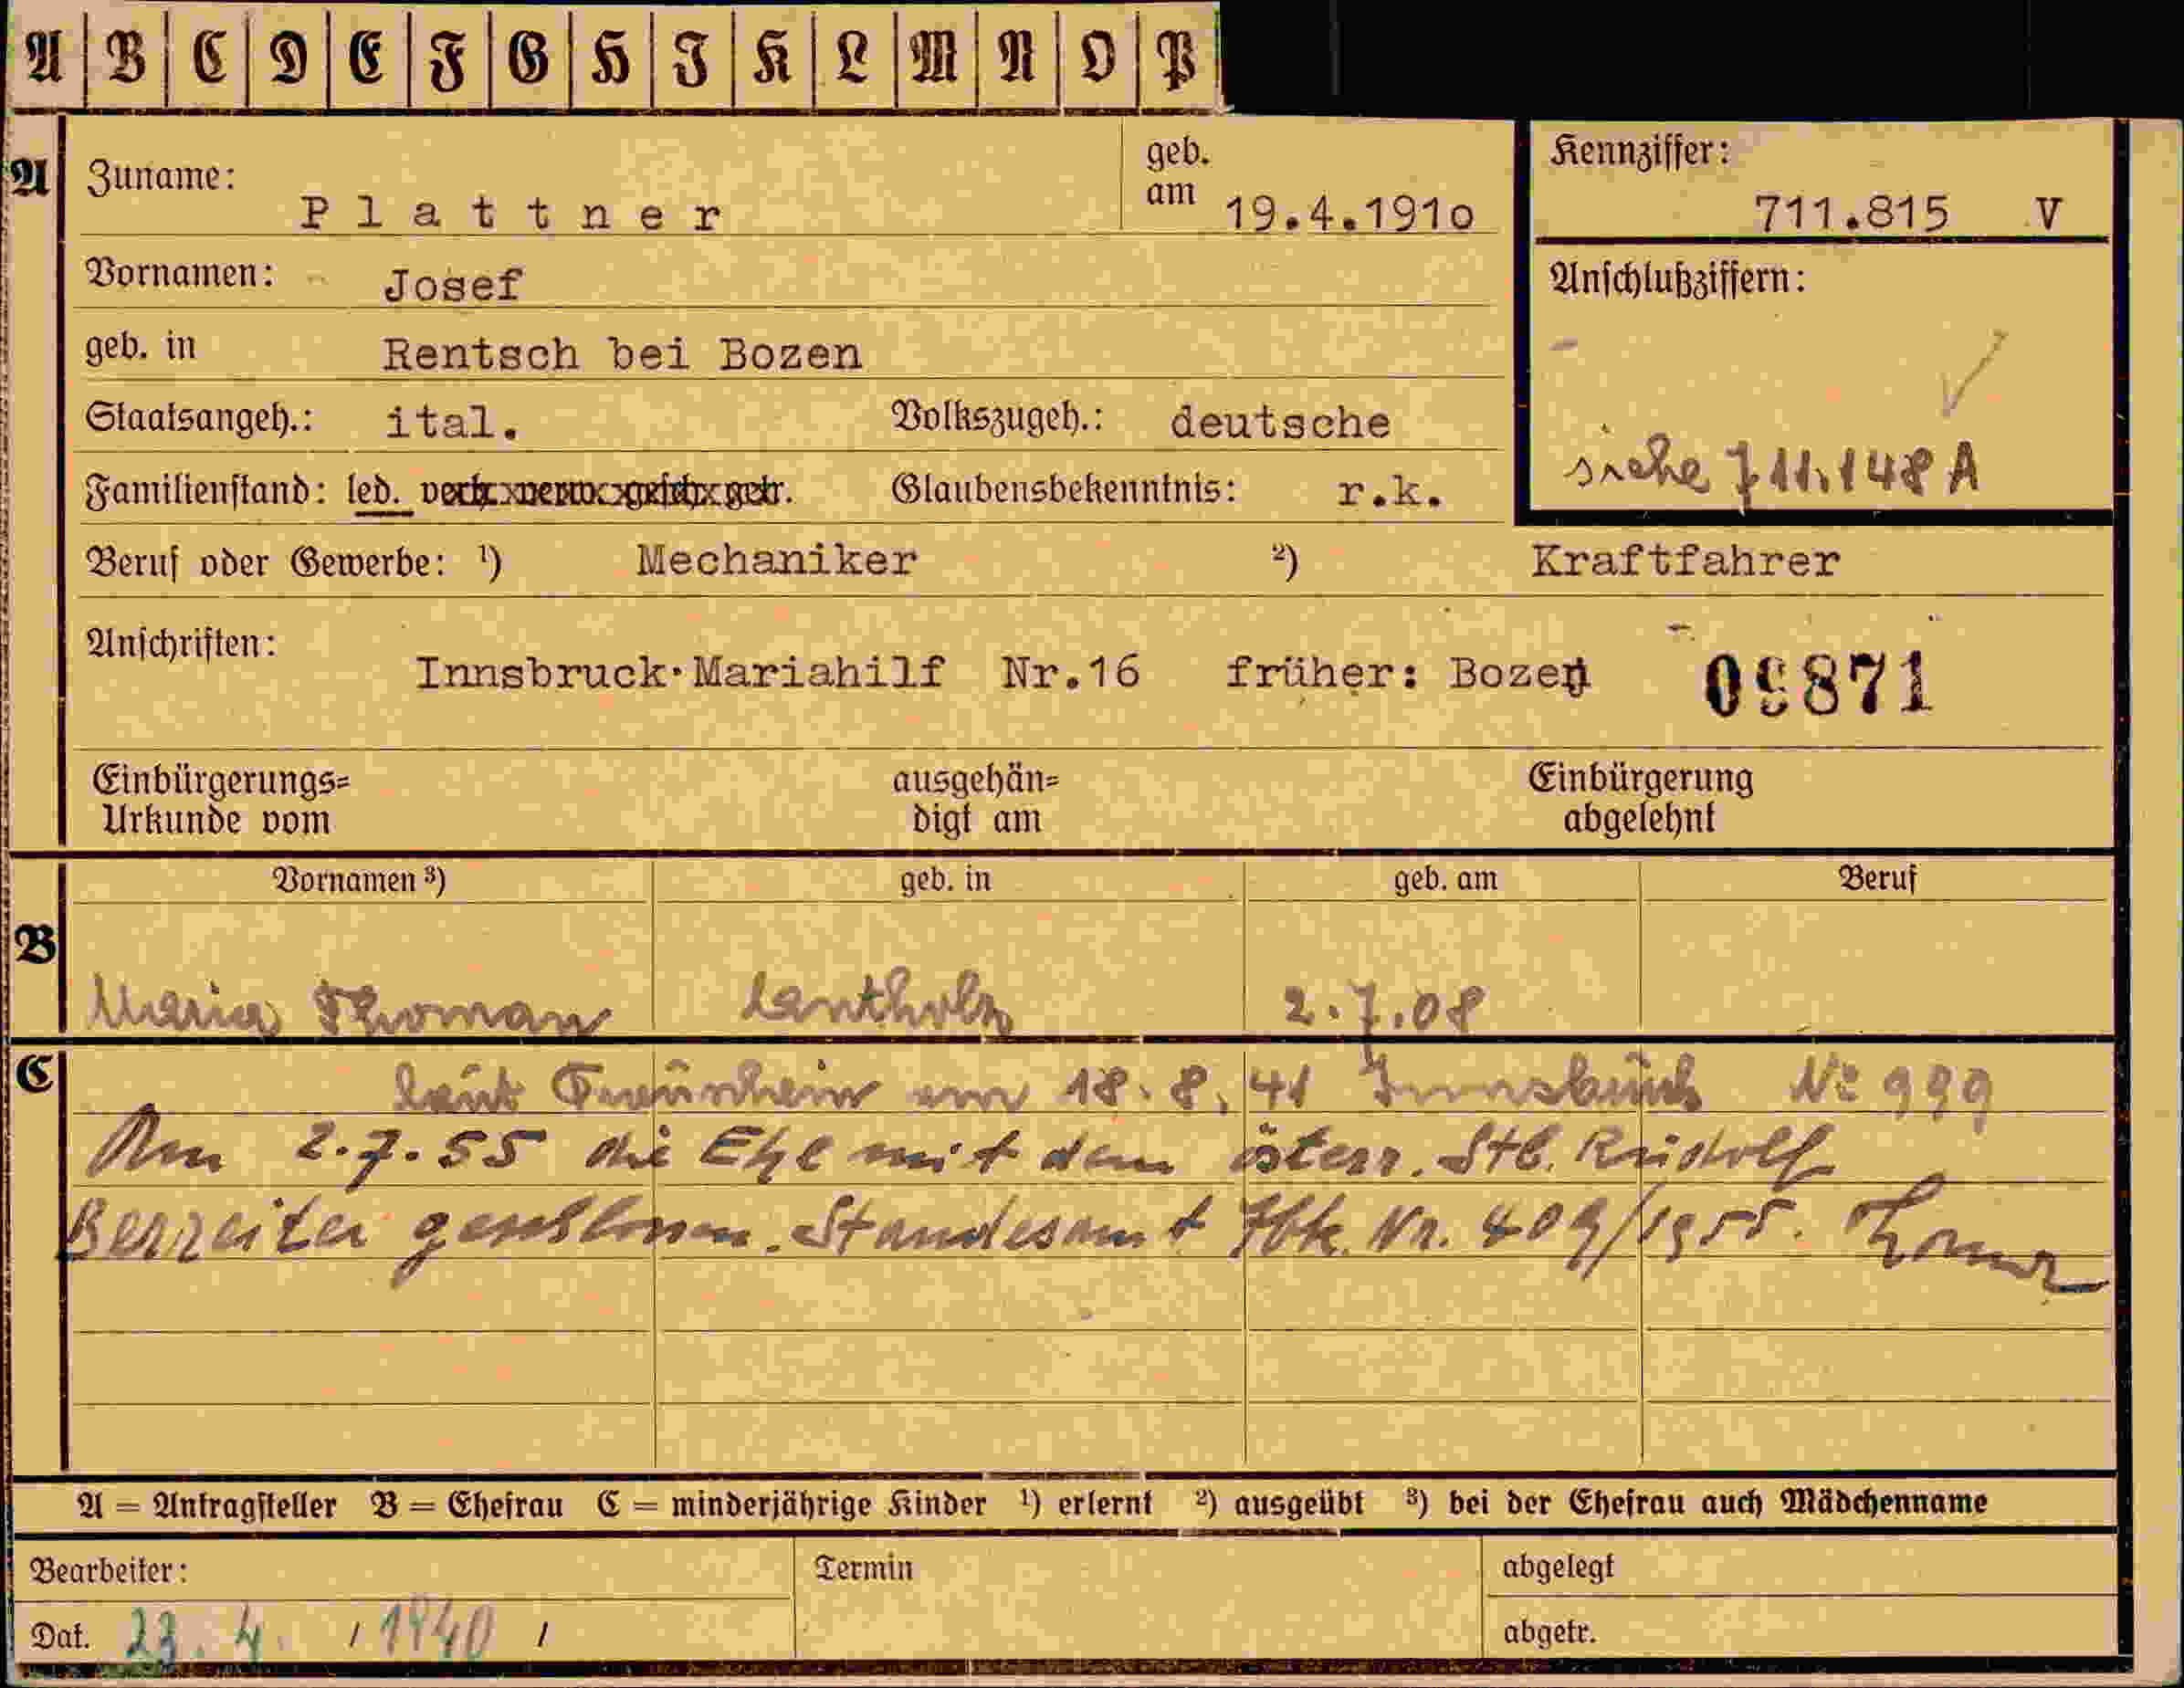 A B C D E F G H I K L M N O P
A Zuname: Plattner geb. am 19.4.1910 Kennziffer: 711.815 V
Vornamen: Josef Anschlußziffern:
geb. in Rentsch bei Bozen
Staatsangeh.: ital. Volkszugeh.: deutsche siehe 711.148 A
Familienstand: led. verh. verw. gesch. getr. Glaubensbekenntnis: r.k.
Beruf oder Gewerbe: ¹) Mechaniker ²) Kraftfahrer
Anschriften: Innsbruck·Mariahilf Nr.16 früher: Bozen 09871
Einbürgerungs= ausgehän= Einbürgerung
Urkunde vom digt am abgelehnt
Vornamen ³) geb. in geb. am Beruf
B
Maria Thoman 2.7.08
C laut Trauschein vom 18.8.41 Innsbruck № 999
Am 2.7.55 die Ehe mit dem österr. Stb. Rudolf
geschlossen. Standesamt Ibk. Nr. 409/1955.
A = Antragsteller B = Ehefrau C = minderjährige Kinder ¹) erlernt ²) ausgeübt ³) bei der Ehefrau auch Mädchenname
Bearbeiter: Termin abgelegt
Dat. 23.4. / 1940 / abgetr.